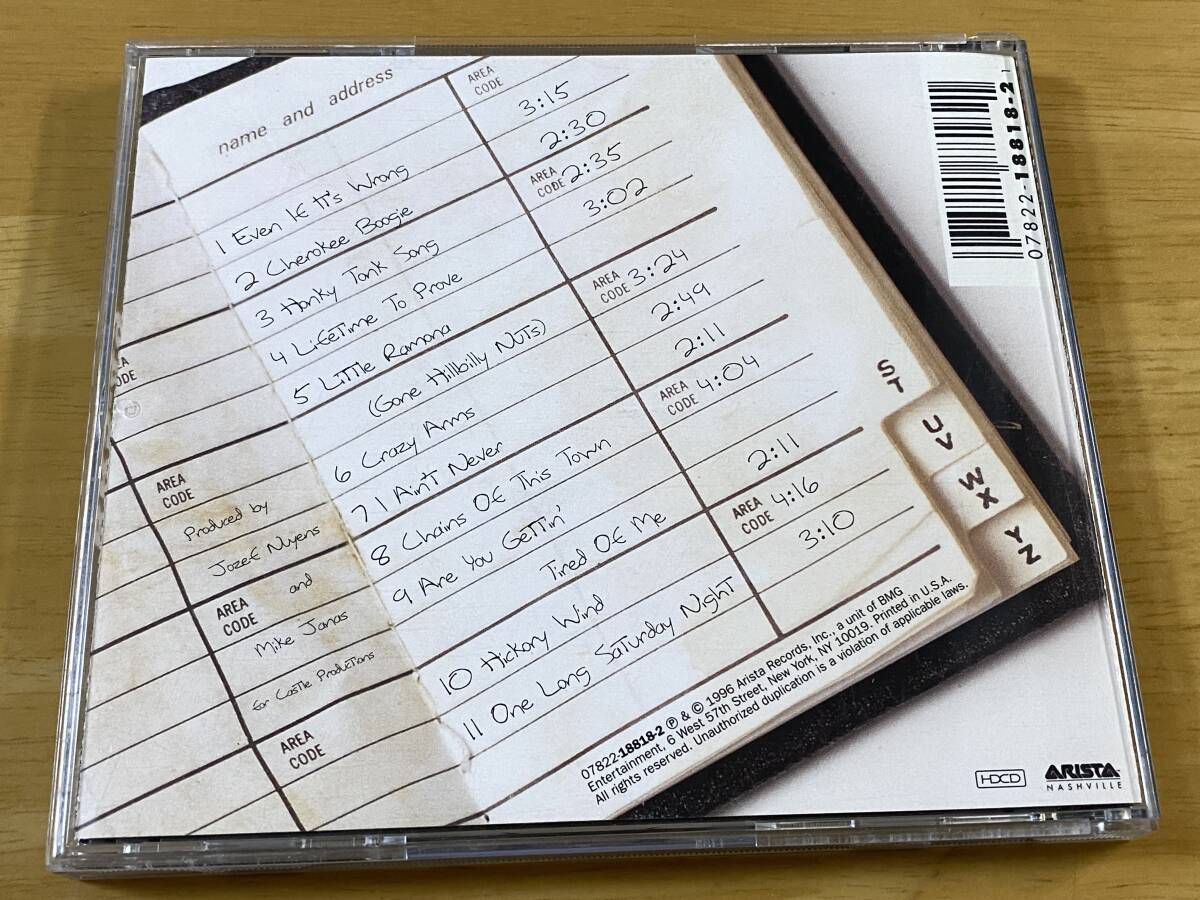 name and address
AREA
CODE
1 Even If It's Wrong 3:15
2 Cherokee Boogie 2:30
3 Honky Tonk Song
AREA
CODE 2:35
4 Lifetime To Prove 3:02
5 Little Ramona
(Gone Hillbilly Nuts)
AREA
CODE 3:24
6 Crazy Arms 2:49
7 I Ain't Never 2:11
8 Chains Of This Town
AREA
CODE 4:04
9 Are You Gettin'
Tired Of Me 2:11
10 Hickory Wind
AREA
CODE 4:16
11 One Long Saturday Night 3:10
EA
ODE
AREA
CODE
Produced by
Jozef Nuyens
AREA
CODE
and
Mike Janas
for Castle Productions
AREA
CODE
ST
UV
WX
YZ
07822-18818-2 ℗ & © 1996 Arista Records, Inc., a unit of BMG
Entertainment, 6 West 57th Street, New York, NY 10019. Printed in U.S.A.
All rights reserved. Unauthorized duplication is a violation of applicable laws.
07822-18818-2 1
HDCD
ARISTA
NASHVILLE